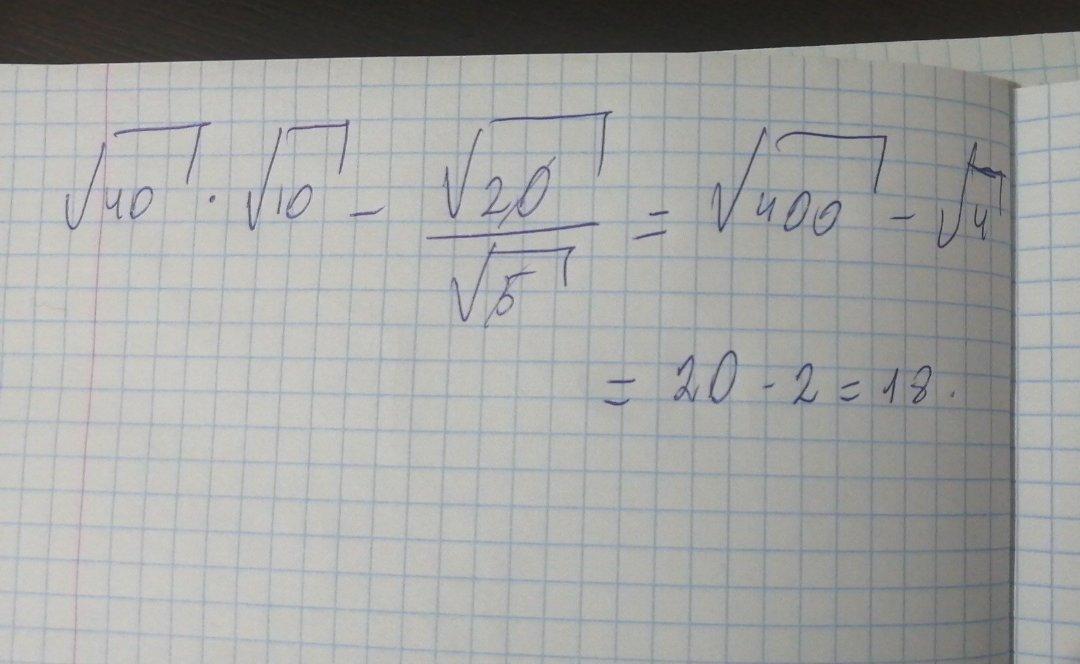 √40 · √10 − √20/√5 = √400 − √4
= 20 - 2 = 18.